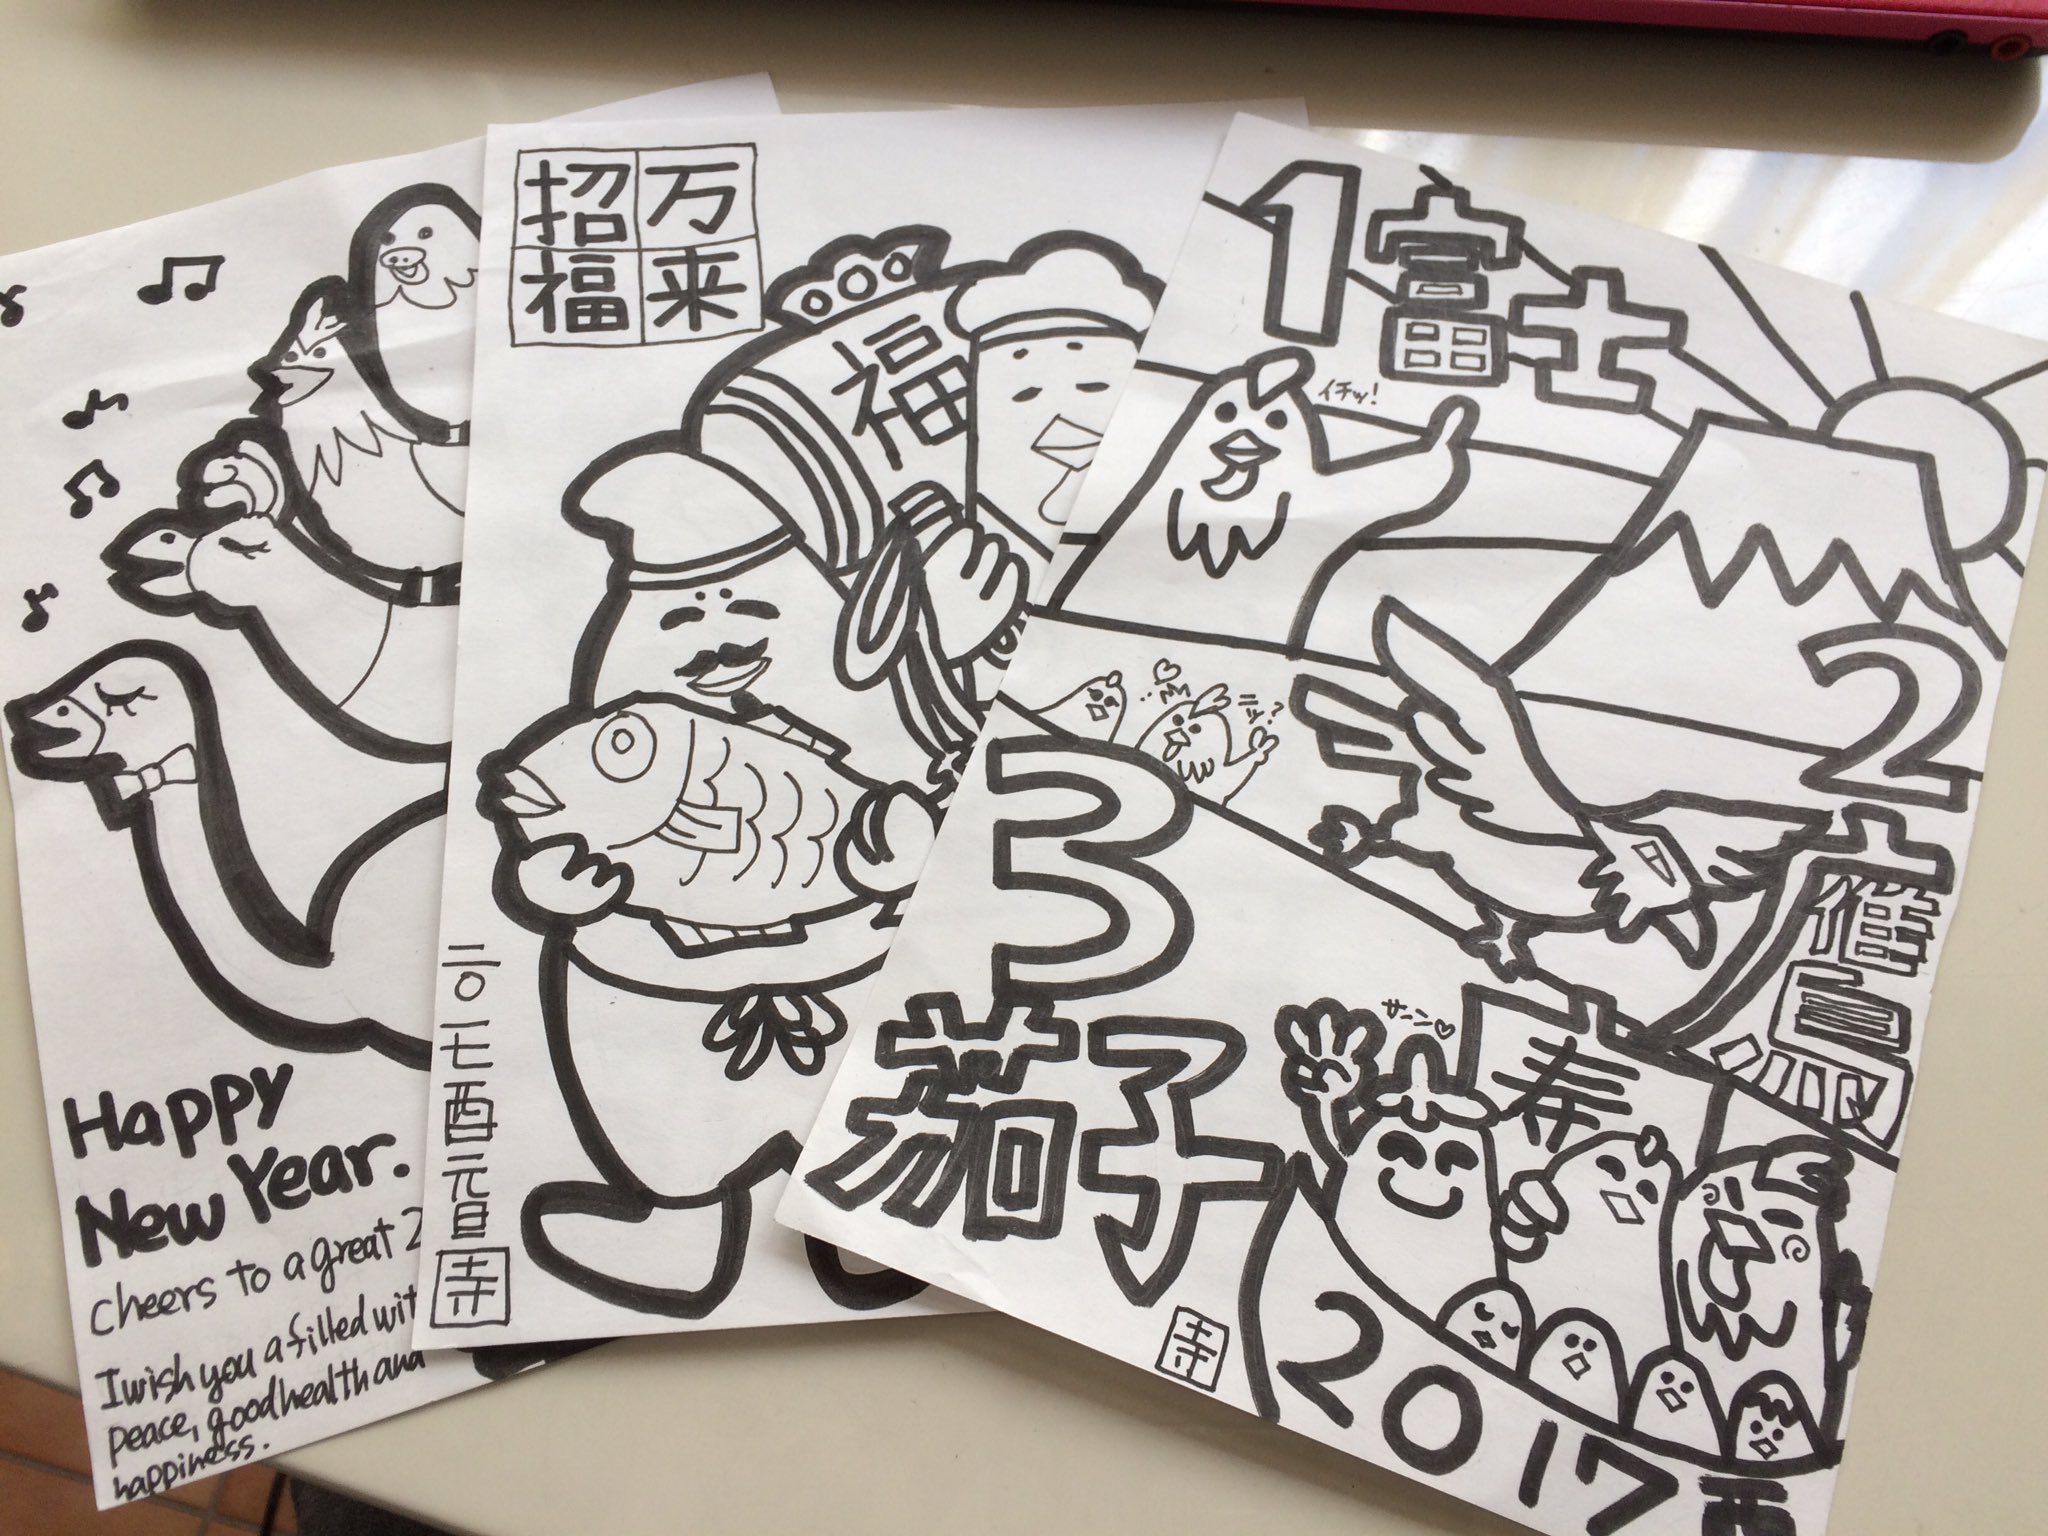 Happy
New Year.
Cheers to a great 2
I wish you a filled wit
peace, good health and
happiness.
万来
招福
福
二〇一七酉元旦
寺
1富士
イチッ!
2鷹
ニッ?
3茄子
サーン♡
寿
寺
2017酉